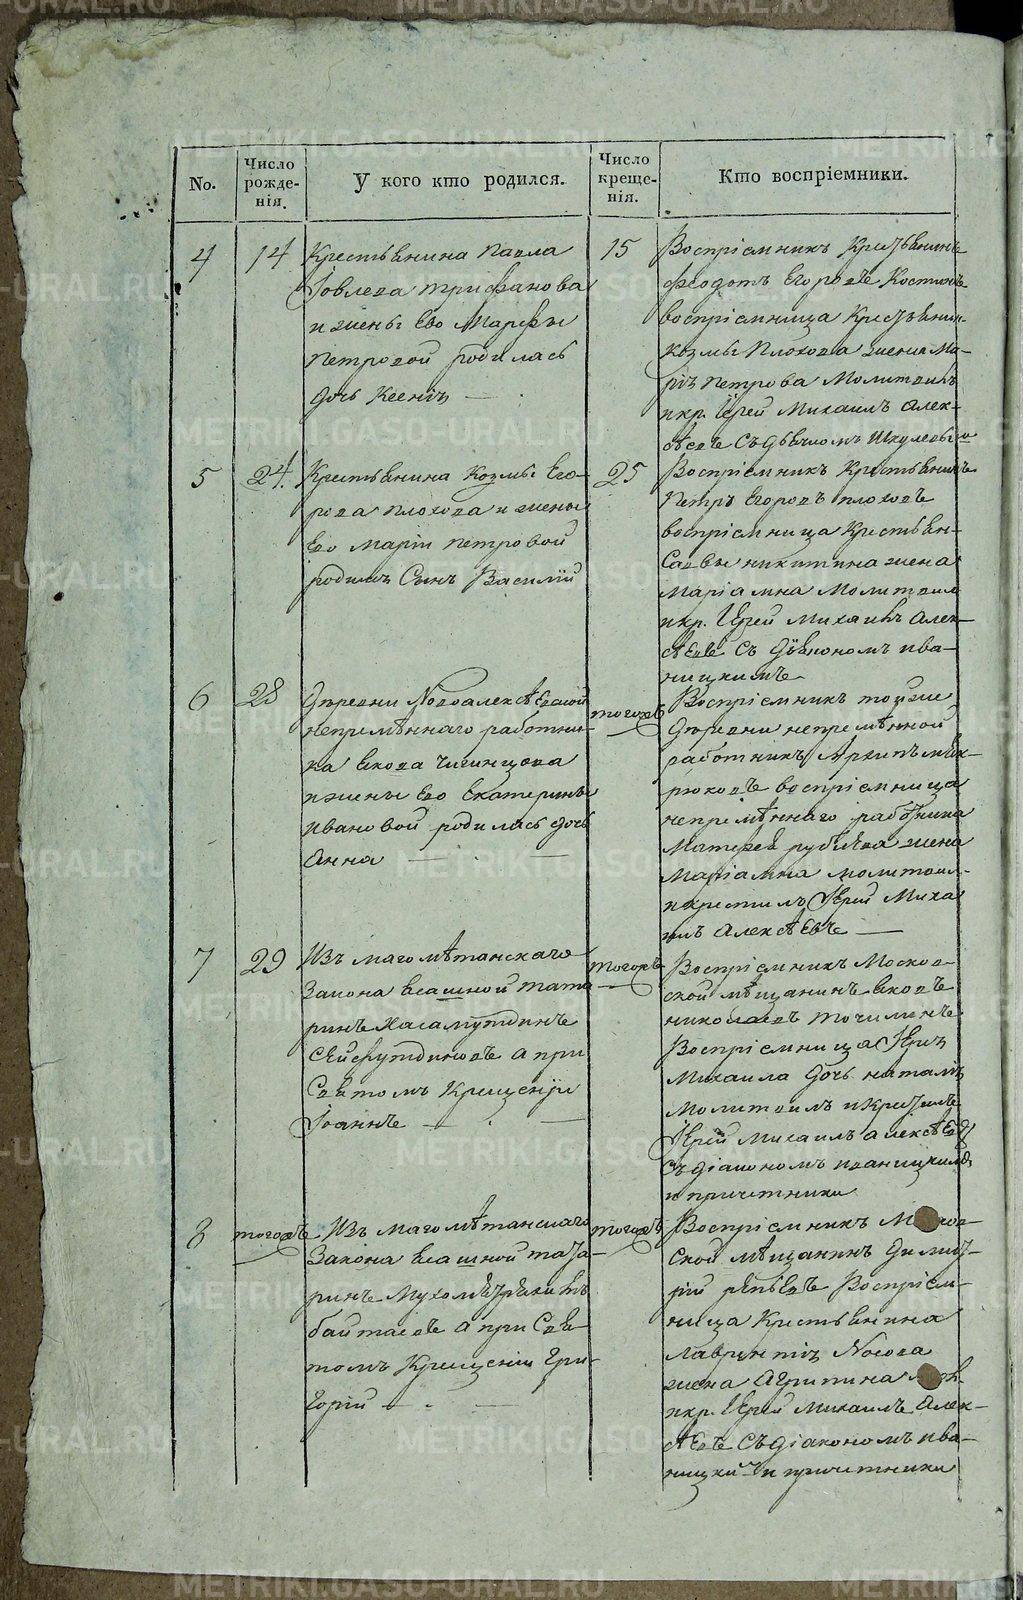 No.
Число рожде-нія.
У кого кто родился.
Число креще-нія.
Кто воспріемники.
4
14
Крестьянина Павла
Іовлева Трифанова
и жены Его Марфы
Петровой родилась
дочь Ксенія
15
Воспріемникъ Кресть­янинъ
Федотъ Егоровъ Костинъ
воспріемница Крестьянин-
Козмы Плохова жена Ма-
рія Петрова Молитвилъ
и кр. Іерей Михаилъ Алек-
сѣевъ съ дьячкомъ
5
24.
Крестьянина Козмы Его-
рова Плохова и жены
Его Маріи Петровой
родился Сынъ Василій
25
Воспріемникъ Крестьянинъ
Петръ Егоровъ Плоховъ
воспріемница Крестьян-
Саввы Никитина жена
Маріамна Молитвил
и кр. Іерей Михаилъ Алек-
сѣевъ съ Дьякономъ Ива-
ницкимъ
6
28
Деревни Новоалексѣевской
непремѣннаго работни-
ка Якова Чигинцова
и жены Его Екатерины
Ивановой родилась дочь
Анна
тогожъ
Воспріемникъ тойже
Деревни непремѣнной
работникъ Архипъ
воспріемница
непремѣннаго работника
Матфея жена
Маріамна молитвил-
и крестилъ Іерей Миха
илъ Алексѣевъ
7
29
Изъ магомѣтанскаго
Закона Ясашной тата
ринъ Хасамутдинъ
Сейфутдиновъ а при
Святомъ Крещеніи
Іоаннъ
тогожъ
Воспріемникъ Москов-
ской мѣщанинъ Яковъ
Николаевъ Точилинъ
Воспріемница Іерея
Михаила дочь Наталія
Молитвилъ и Крестилъ
Іерей Михаилъ Алексѣевъ
съ діакономъ Иваницкимъ
и причетники
8
тогожъ
Изъ магомѣтанскаго
Закона Ясашной тата-
ринъ
а при Свя-
томъ Крещеніи Гри-
горій
тогожъ
Воспріемникъ Москов-
ской мѣщанинъ Димит-
рій Воспріем-
ница Крестьянина
Лаврентія Носова
жена Агрипина
и кр. Іерей Михаилъ Алек-
сѣевъ съ діакономъ Ива-
ницки и причетники
METRIKI.GASO-URAL.RU